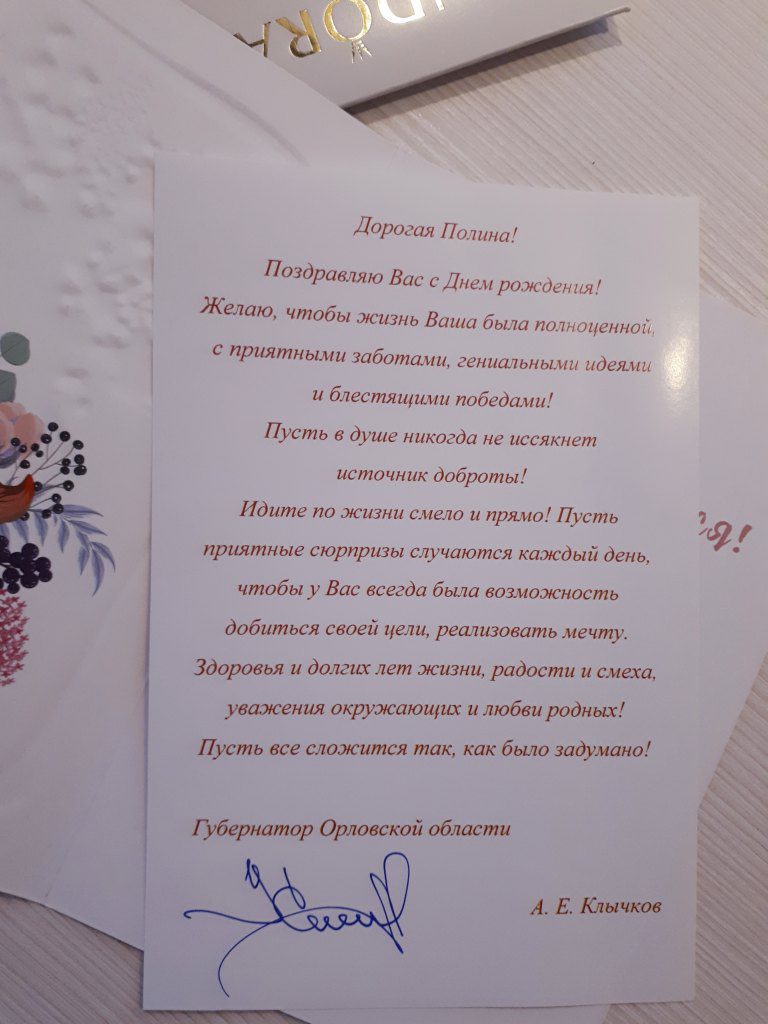 DORA
Дорогая Полина!
Поздравляю Вас с Днем рождения!
Желаю, чтобы жизнь Ваша была полноценной,
с приятными заботами, гениальными идеями
и блестящими победами!
Пусть в душе никогда не иссякнет
источник доброты!
Идите по жизни смело и прямо! Пусть
приятные сюрпризы случаются каждый день,
чтобы у Вас всегда была возможность
добиться своей цели, реализовать мечту.
Здоровья и долгих лет жизни, радости и смеха,
уважения окружающих и любви родных!
Пусть все сложится так, как было задумано!
Губернатор Орловской области
А. Е. Клычков